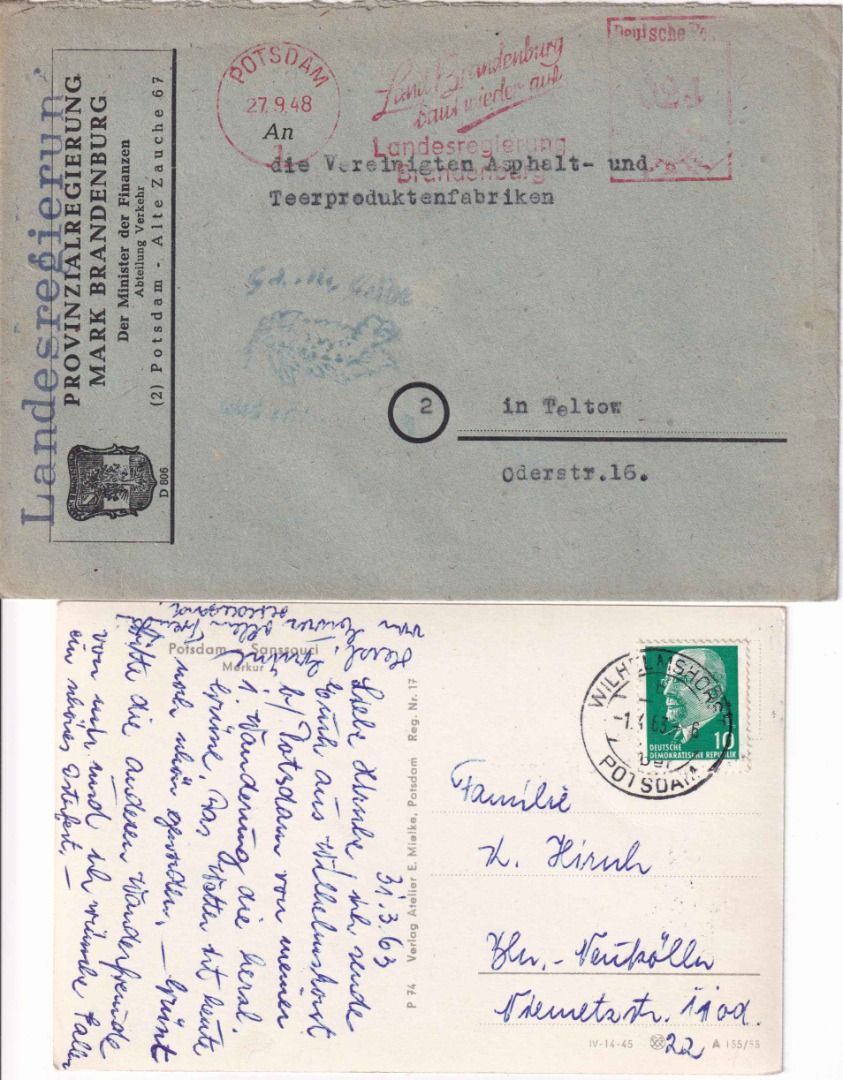 Landesregierun
PROVINZIALREGIERUNG
MARK BRANDENBURG
Der Minister der Finanzen
Abteilung Verkehr
(2) Potsdam - Alte Zauche 67
D 806
POTSDAM
27.9.48
1
Land Brandenburg
baut wieder auf
Landesregierung
Brandenburg
Deutsche Pos
An
die Vereinigten Asphalt- und
Teerproduktenfabriken
2
in Teltow
Oderstr.16.
Potsdam Sanssouci
Merkur
31.3.63
Liebe Hirschs, ich sende
Euch aus Wilhelmshorst
b/Potsdam von meiner
1. Wanderung die herzl.
Grüße. Das Wetter ist heute
noch schön geworden. – Grüßt
bitte die anderen Wanderfreunde
von mir und ich wünsche allen
ein schönes Osterfest. –
Herzl.
P 74 Verlag Atelier E. Mielke, Potsdam Reg. Nr. 17
WILHELMSHORST
POTSDAM
10
DEUTSCHE
DEMOKRATISCHE REPUBLIK
Familie
K. Hirsch
Bln.-Neukölln
Niemetzstr.
22
IV-14-45 A 155/55